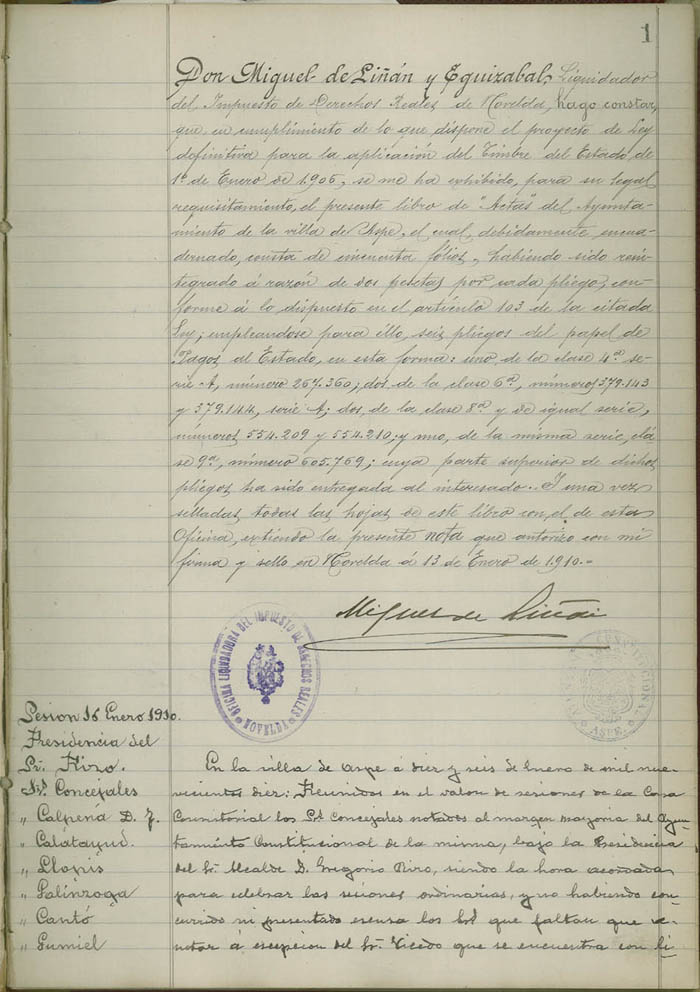 1
Don Miguel de Liñán y Eguizabal, Liquidador
del Impuesto de Derechos Reales de Novelda, hago constar,
que, en cumplimiento de lo que dispone el proyecto de Ley
definitiva para la aplicación del Timbre del Estado, de
1º de Enero de 1.906, se me ha exhibido, para su legal
requisitamiento, el presente libro de "Actas" del Ayunta-
miento de la villa de Aspe, el cual, debidamente encua-
dernado, consta de cincuenta folios, habiendo sido rein-
tegrado á razón de dos pesetas por cada pliego, con-
forme á lo dispuesto en el artículo 103 de la citada
Ley; empleandose para éllo, seis pliegos del papel de
Pagos al Estado, en esta forma: uno, de la clase 4ª se-
rie A, número 267.360; dos, de la clase 6ª, números 379.143
y 379.144, serie A; dos, de la clase 8ª y de igual serie,
números 554.209 y 554.210; y uno, de la misma serie, clá
se 9ª, número 605.769; cuya parte superior de dichos
pliegos ha sido entregada al interesado. Y una vez
selladas todas las hojas de este libro con el de esta
Oficina, extiendo la presente nota que autorizo con mi
firma y sello en Novelda á 13 de Enero de 1.910.=
Miguel de Liñán
OFICINA LIQUIDADORA DEL IMPUESTO DE DERECHOS REALES
NOVELDA
CONSTITUCIONAL
ASPE
Sesion 16 Enero 1910.
Presidencia del
Sr. Rizo.
Srs Concejales
" Calpena D. J.
" Calatayud.
" Llopis
" Palinzoga
" Cantó
" Gumiel
En la villa de Aspe á diez y seis de Enero de mil nue-
vecientos diez: Reunidos en el salon de sesiones de la Casa
Consistorial los Srs Concejales notados al margen mayoria del Ayun-
tamiento Constitucional de la misma, bajo la Presidencia
del Sr. Alcalde D. Gregorio Rizo, siendo la hora acordada
para celebrar las sesiones ordinarias, y no habiendo con-
currido ni presentado escusa los Srs que faltan que
notar á escepcion del Sr. Vicedo que se encuentra con li